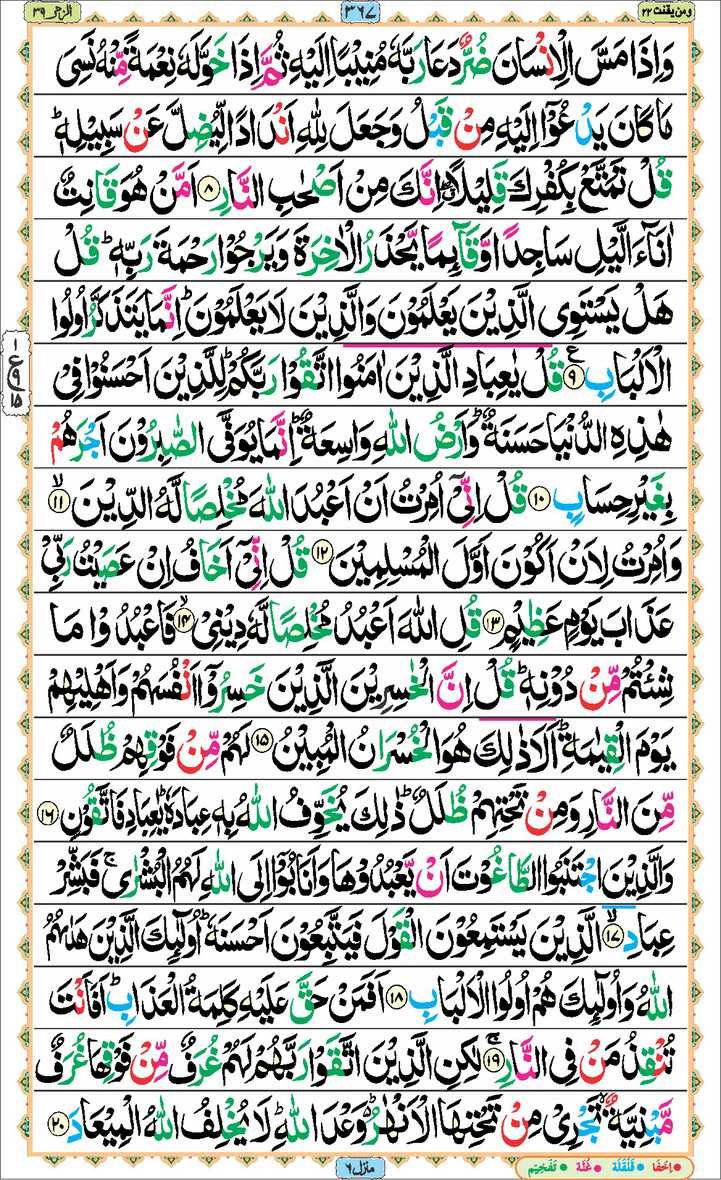 ومن یقنت ۲۳
۳۶۷
الزمر ۳۹
وَاِذَا مَسَّ الْاِنْسَانَ ضُرٌّ دَعَا رَبَّهٗ مُنِیْبًا اِلَیْهِ ثُمَّ اِذَا خَوَّلَهٗ نِعْمَةً مِّنْهُ نَسِیَ
مَا كَانَ یَدْعُوْۤا اِلَیْهِ مِنْ قَبْلُ وَجَعَلَ لِلّٰهِ اَنْدَادًا لِّیُضِلَّ عَنْ سَبِیْلِهٖ ؕ
قُلْ تَمَتَّعْ بِكُفْرِكَ قَلِیْلًا ۖۗ اِنَّكَ مِنْ اَصْحٰبِ النَّارِ ۸ اَمَّنْ هُوَ قَانِتٌ
اٰنَآءَ الَّیْلِ سَاجِدًا وَّقَآىِٕمًا یَّحْذَرُ الْاٰخِرَةَ وَیَرْجُوْا رَحْمَةَ رَبِّهٖ ؕ قُلْ
هَلْ یَسْتَوِی الَّذِیْنَ یَعْلَمُوْنَ وَالَّذِیْنَ لَا یَعْلَمُوْنَ ؕ اِنَّمَا یَتَذَكَّرُ اُولُوا
الْاَلْبَابِ ۹ ع قُلْ یٰعِبَادِ الَّذِیْنَ اٰمَنُوا اتَّقُوْا رَبَّكُمْ ؕ لِلَّذِیْنَ اَحْسَنُوْا فِیْ
هٰذِهِ الدُّنْیَا حَسَنَةٌ ؕ وَاَرْضُ اللّٰهِ وَاسِعَةٌ ؕ اِنَّمَا یُوَفَّی الصّٰبِرُوْنَ اَجْرَهُمْ
بِغَیْرِ حِسَابٍ ۱۰ قُلْ اِنِّیْۤ اُمِرْتُ اَنْ اَعْبُدَ اللّٰهَ مُخْلِصًا لَّهُ الدِّیْنَ ۙ ۱۱
وَاُمِرْتُ لِاَنْ اَكُوْنَ اَوَّلَ الْمُسْلِمِیْنَ ۱۲ قُلْ اِنِّیْۤ اَخَافُ اِنْ عَصَیْتُ رَبِّیْ
عَذَابَ یَوْمٍ عَظِیْمٍ ۱۳ قُلِ اللّٰهَ اَعْبُدُ مُخْلِصًا لَّهٗ دِیْنِیْ ۙ ۱۴ فَاعْبُدُوْا مَا
شِئْتُمْ مِّنْ دُوْنِهٖ ؕ قُلْ اِنَّ الْخٰسِرِیْنَ الَّذِیْنَ خَسِرُوْۤا اَنْفُسَهُمْ وَاَهْلِیْهِمْ
یَوْمَ الْقِیٰمَةِ ؕ اَلَا ذٰلِكَ هُوَ الْخُسْرَانُ الْمُبِیْنُ ۱۵ لَهُمْ مِّنْ فَوْقِهِمْ ظُلَلٌ
مِّنَ النَّارِ وَمِنْ تَحْتِهِمْ ظُلَلٌ ؕ ذٰلِكَ یُخَوِّفُ اللّٰهُ بِهٖ عِبَادَهٗ ؕ یٰعِبَادِ فَاتَّقُوْنِ ۱۶
وَالَّذِیْنَ اجْتَنَبُوا الطَّاغُوْتَ اَنْ یَّعْبُدُوْهَا وَاَنَابُوْۤا اِلَی اللّٰهِ لَهُمُ الْبُشْرٰی ۚ فَبَشِّرْ
عِبَادِ ۙ ۱۷ الَّذِیْنَ یَسْتَمِعُوْنَ الْقَوْلَ فَیَتَّبِعُوْنَ اَحْسَنَهٗ ؕ اُولٰٓىِٕكَ الَّذِیْنَ هَدٰىهُمُ
اللّٰهُ وَاُولٰٓىِٕكَ هُمْ اُولُوا الْاَلْبَابِ ۱۸ اَفَمَنْ حَقَّ عَلَیْهِ كَلِمَةُ الْعَذَابِ ؕ اَفَاَنْتَ
تُنْقِذُ مَنْ فِی النَّارِ ۚ ۱۹ لٰكِنِ الَّذِیْنَ اتَّقَوْا رَبَّهُمْ لَهُمْ غُرَفٌ مِّنْ فَوْقِهَا غُرَفٌ
مَّبْنِیَّةٌ ۙ تَجْرِیْ مِنْ تَحْتِهَا الْاَنْهٰرُ ؕ وَعْدَ اللّٰهِ ؕ لَا یُخْلِفُ اللّٰهُ الْمِیْعَادَ ۲۰
منزل ۶
اِخفَا • قَلْقَلَة • غُنَّة • تَفْخِیْم •